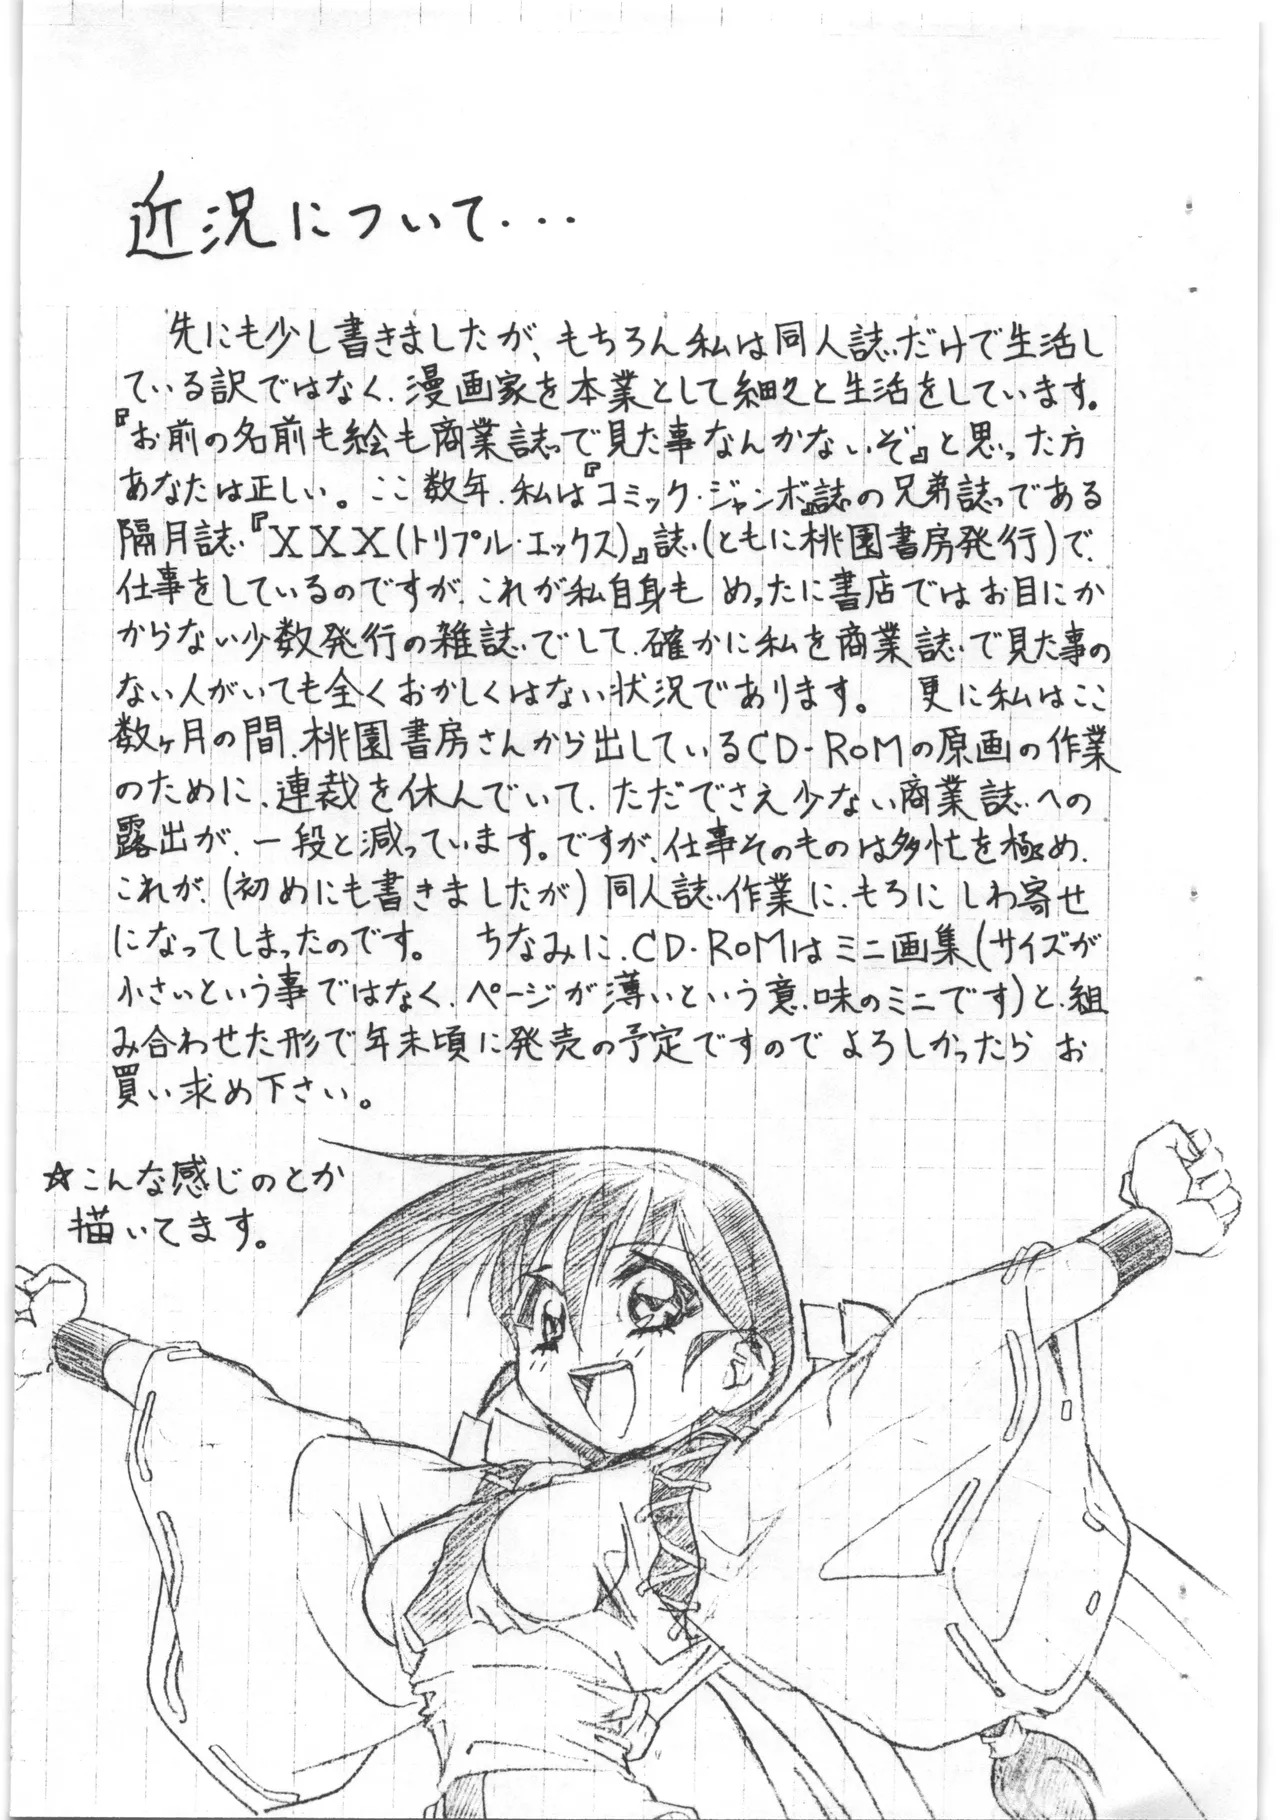 近況について...
先にも少し書きましたが、もちろん私は同人誌だけで生活し
ている訳ではなく、漫画家を本業として細々と生活をしています。
『お前の名前も絵も商業誌で見た事なんかないぞ』と思った方
あなたは正しい。ここ数年、私は『コミック・ジャンボ』誌の兄弟誌である
隔月誌『XXX(トリプル・エックス)』誌(ともに桃園書房発行)で、
仕事をしているのですが、これが私自身も めったに書店ではお目にか
からない少数発行の雑誌でして、確かに私を商業誌で見た事の
ない人がいても全くおかしくはない状況であります。 更に私はここ
数ヶ月の間、桃園書房さんから出しているCD-ROMの原画の作業
のために、連裁を休んでいて、ただでさえ少ない商業誌への
露出が、一段と減っています。ですが、仕事そのものは多忙を極め、
これが、(初めにも書きましたが)同人誌作業に、もろにしわ寄せ
になってしまったのです。 ちなみに、CD-ROMはミニ画集(サイズが
小さいという事ではなく、ページが薄いという意味のミニです)と、組
み合わせた形で年末頃に発売の予定ですのでよろしかったら お
買い求め下さい。
☆こんな感じのとか
描いてます。